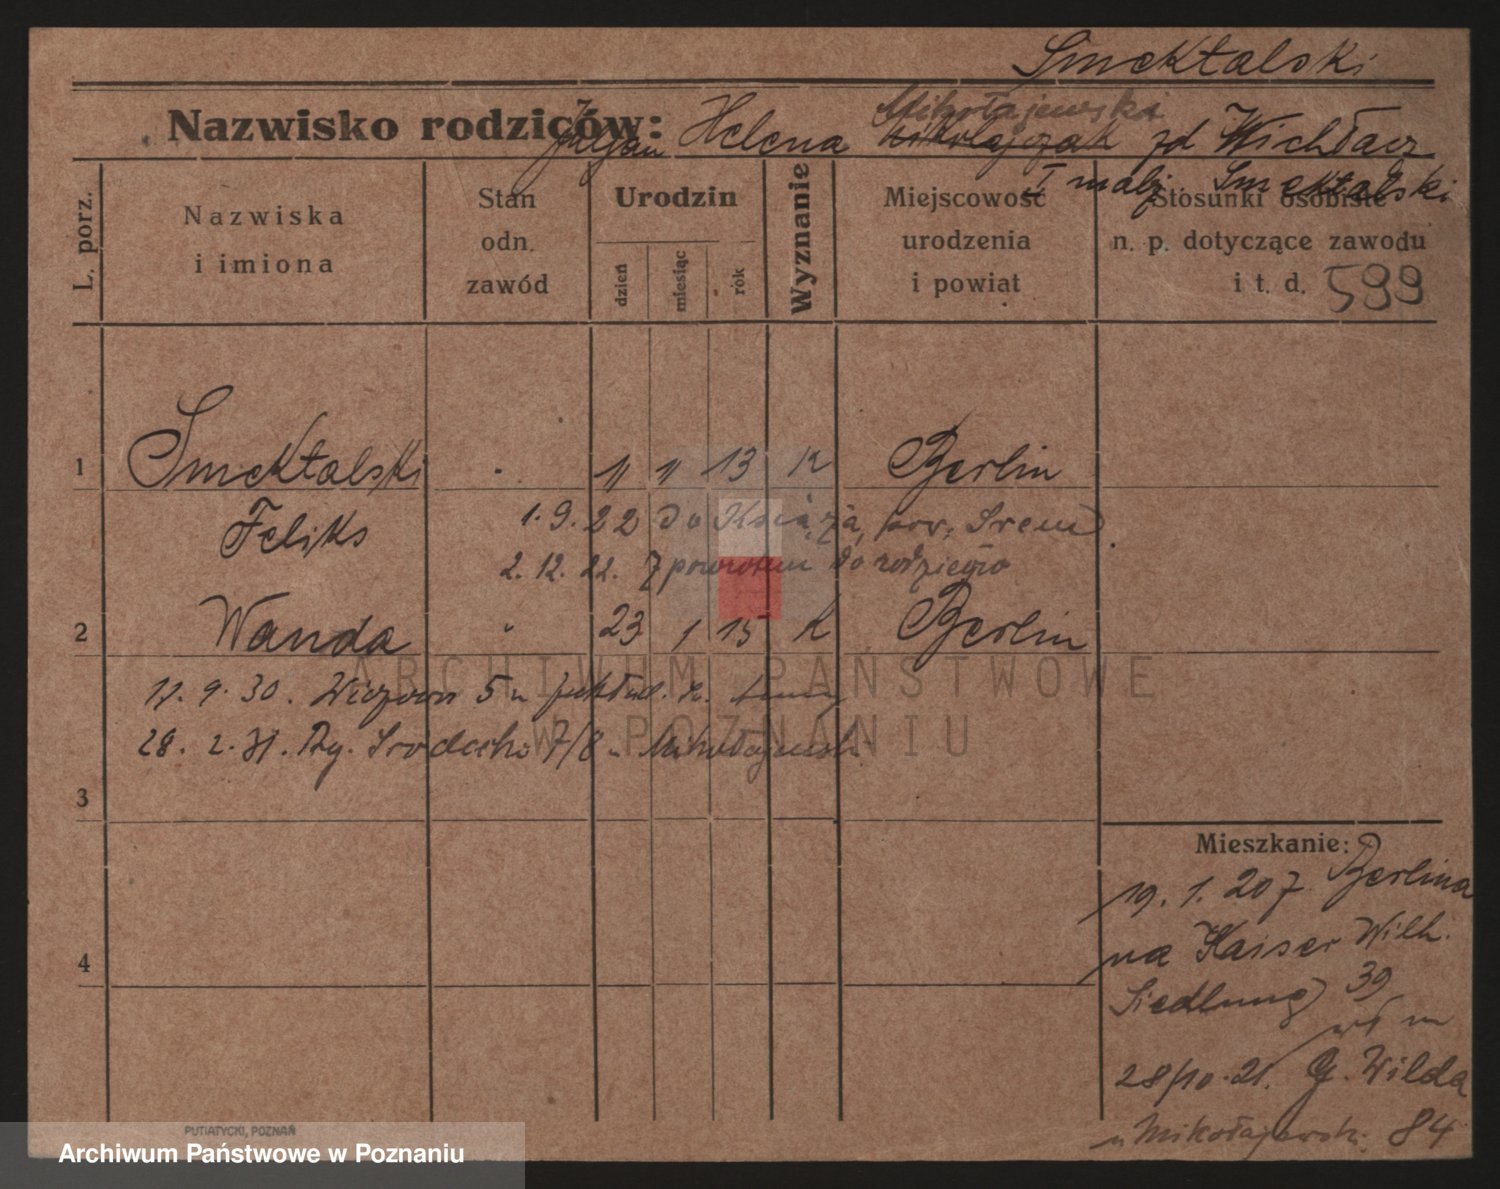 Smektalski
Nazwisko rodziców: Helena Mikołajewski Mikołajczak zd Wichłacz
I małż. Smektalski
L. porz.
Nazwiska i imiona
Stan odn. zawód
Urodzin
dzień
miesiąc
rok
Wyznanie
Miejscowość urodzenia i powiat
Stosunki osobiste n. p. dotyczące zawodu i t. d. 599
1 Smektalski 11 11 13 K Berlin
Feliks 1.9.22 do Książa, pow. Srem
2.12.22. z powrotem do
2 Wanda " 23 1 15 K Berlin
11.9.30. 5 u
28.2.31. Ry. Srodecki 7/8 u Mikołajewsk.
3
4
Mieszkanie:
19.1.20 z Berlina
na Kaiser Wilh.
Siedlung 39
28/10.21. G. Wilda
u Mikołajewski 84
PUTIATYCKI, POZNAŃ
ARCHIWUM PAŃSTWOWE
W POZNANIU
Archiwum Państwowe w Poznaniu